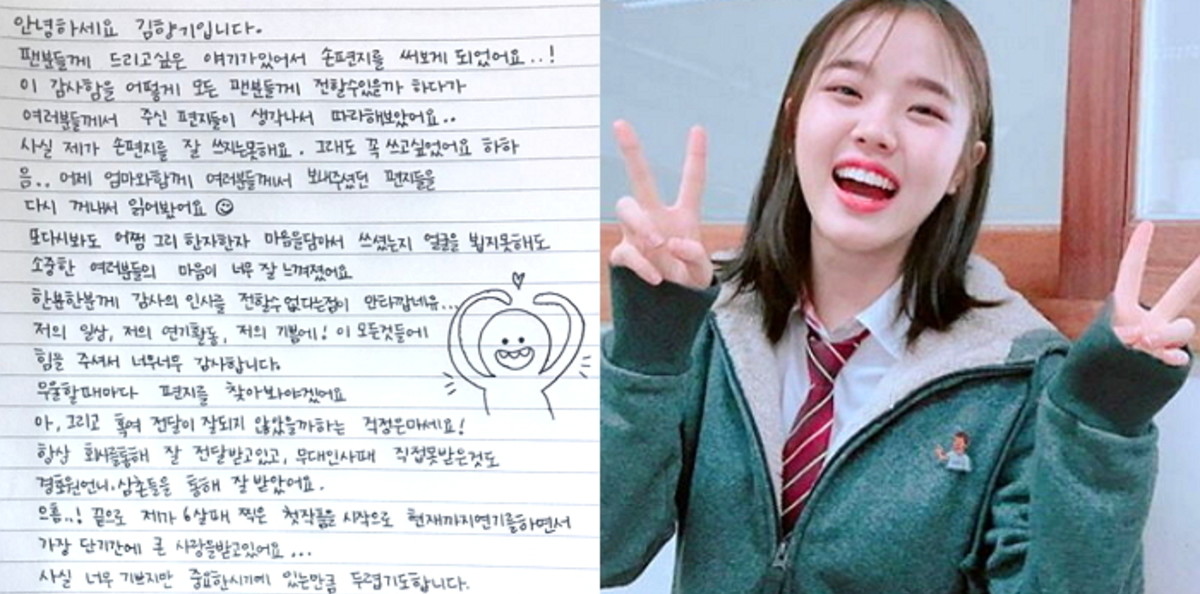 안녕하세요 김향기입니다.
팬분들께 드리고싶은 얘기가있어서 손편지를 써보게 되었어요..!
이 감사함을 어떻게 모든 팬분들께 전할수있을까 하다가
여러분들께서 주신 편지들이 생각나서 따라해보았어요..
사실 제가 손편지를 잘 쓰지는못해요. 그래도 꼭 쓰고싶었어요 하하
음.. 어제 엄마와함께 여러분들께서 보내주셨던 편지들을
다시 꺼내서 읽어봤어요 ☺
또다시봐도 어쩜 그리 한자한자 마음을담아서 쓰셨는지 얼굴을 뵙지못해도
소중한 여러분들의 마음이 너무 잘 느껴졌어요
한분한분께 감사의 인사를 전할수 없다는점이 안타깝네유...
저의 일상, 저의 연기활동, 저의 기쁨에! 이 모든것들에
힘을 주셔서 너무너무 감사합니다.
우울할때마다 편지를 찾아봐야겠어요
아, 그리고 혹여 전달이 잘되지 않았을까하는 걱정은마세요!
항상 회사를통해 잘 전달받고있고, 무대인사때 직접못받은것도
경호원언니·삼촌들을 통해 잘 받았어요.
으흠..! 끝으로 제가 6살때 찍은 첫작품을 시작으로 현재까지연기를하면서
가장 단기간에 큰 사랑을받고있어요...
사실 너무 기쁘지만 중요한시기에 있는만큼 두렵기도합니다.